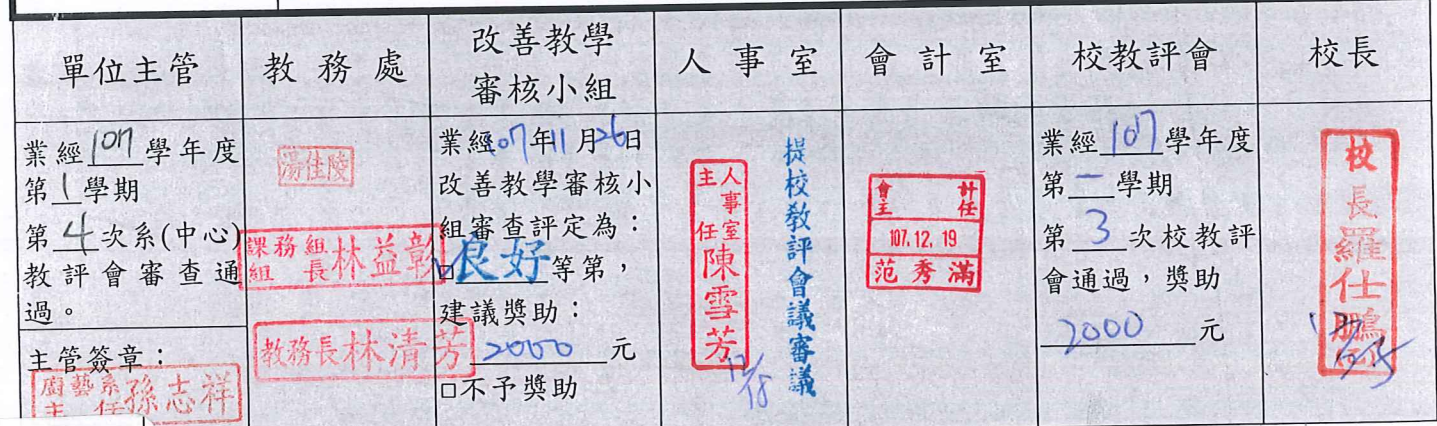 單位主管
教務處
改善教學
審核小組
人事室
會計室
校教評會
校長
業經107學年度
第1學期
第4次系(中心)
教評會審查通
過。
主管簽章：
廚藝系
主任孫志祥
湯佳陵
課務組
組長林益彰
教務長林清芳
業經107年11月26日
改善教學審核小
組審查評定為：
□良好等第，
建議獎助：
2000元
□不予獎助
人事室
主任陳雪芳
12/18
提校教評會議審議
會計
主任
107.12.19
范秀滿
業經107學年度
第一學期
第3次校教評
會通過，獎助
2000元
校長羅仕鵬